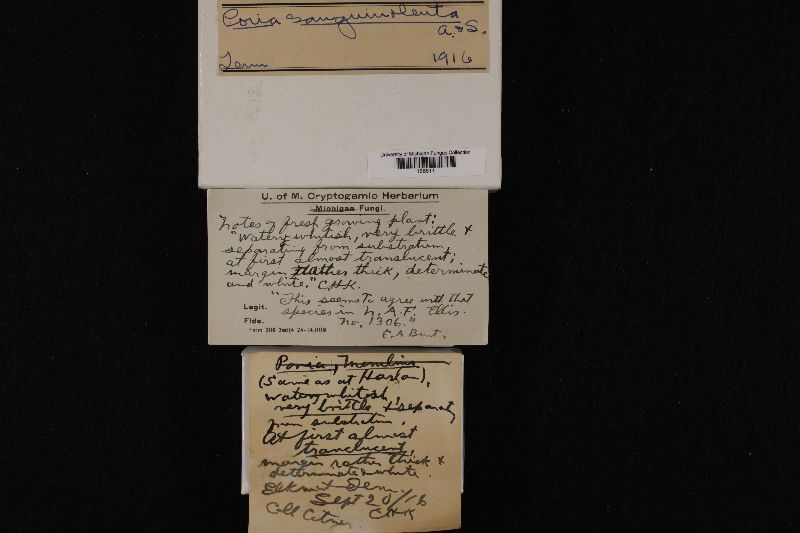 Poria sanguinolenta
A. & S.
Tenn 1916
University of Michigan Fungus Collection
U. of M. Cryptogamic Herbarium
Michigan Fungi.
Notes of fresh growing plant:
"Watery whitish, very brittle &
separating from substratum,
at first almost translucent;
margin rather thick, determinate
and white." C.H.K.
"This seems to agree with that
Legit. species in N. A. F. Ellis.
Fide. No. 1306."
E. A. Burt.
Poria, Merulius
(Same as at Harlan),
watery whitish,
very brittle & separatg
from substratum.
At first almost
tranclucent,
margin rather thick &
determinate & white.
Elkmont Tenn.
Sept 20/16
Coll CHK